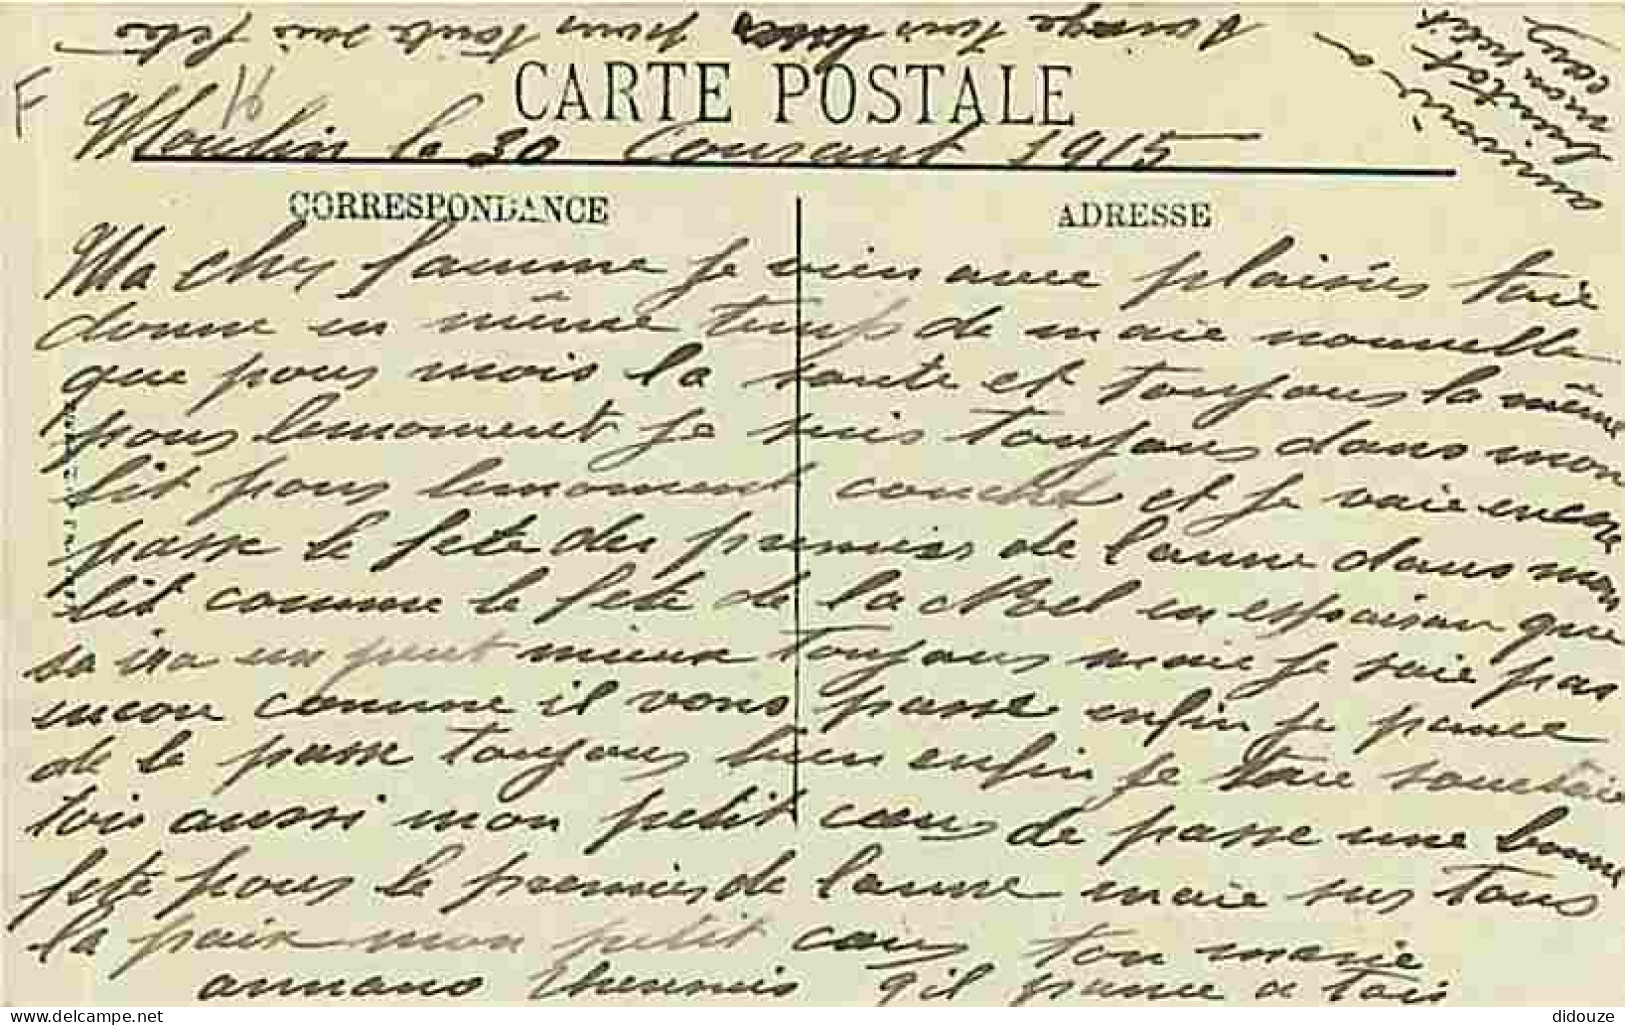 CARTE POSTALE
Moulin le 30 Courant 1915
CORRESPONDANCE
ADRESSE
Ma cher famme je vien avec plaisir taie
donne en même temps de maie nouvelle
que pour mois la sante et toujour la même
pour lemoment je suis toujour dans mon
lit pour lemoment couché et je vaie encore
passe le fete des premier de lanne dans mon
lit comme le fete de la Noel en espairan que
sa ira un peut mieux toujour maie je saie pas
encore comme il vons passe enfin je pance
de le passe toujour bien enfin je taie souetaie
tois aussi mon petit cœur de passe une bonne
fete pour le premier de lanne maie sur tous
la paix mon petit cœur ton marie
armano qil pance a tois
didouze